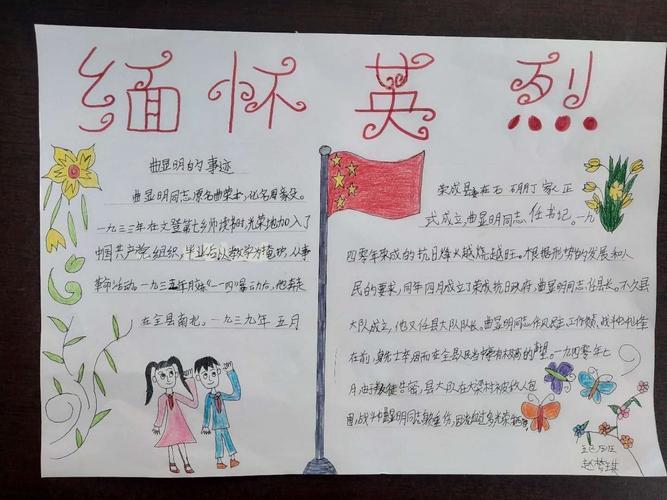 缅怀英烈
曲显明的事迹
曲显明同志原名曲荣
一九三三年在文登第七乡师读时光荣地加入了
中国共产党组织,毕业后以教学为掩护,从事
革命活动。一九三五年一一四暴动后,他奔走
在全县南北。一九三九年五月
荣成县在石家正
式成立,曲显明同志任书记。一九
四零年荣成的抗日烽火越烧越旺。根据形势的发展和人
民的要求,同年四月成立了荣成抗日政府,曲显明同志任县长。不久县
大队成立,他又任县大队队长。曲显明同志作风民主,工作
在前,身先士卒因而在全县有极高的声望。一九四零年七
月,由于告密,县大队在大梁村被敌人包
围,战斗中曲显明同志负重伤,光荣
赵梦琪